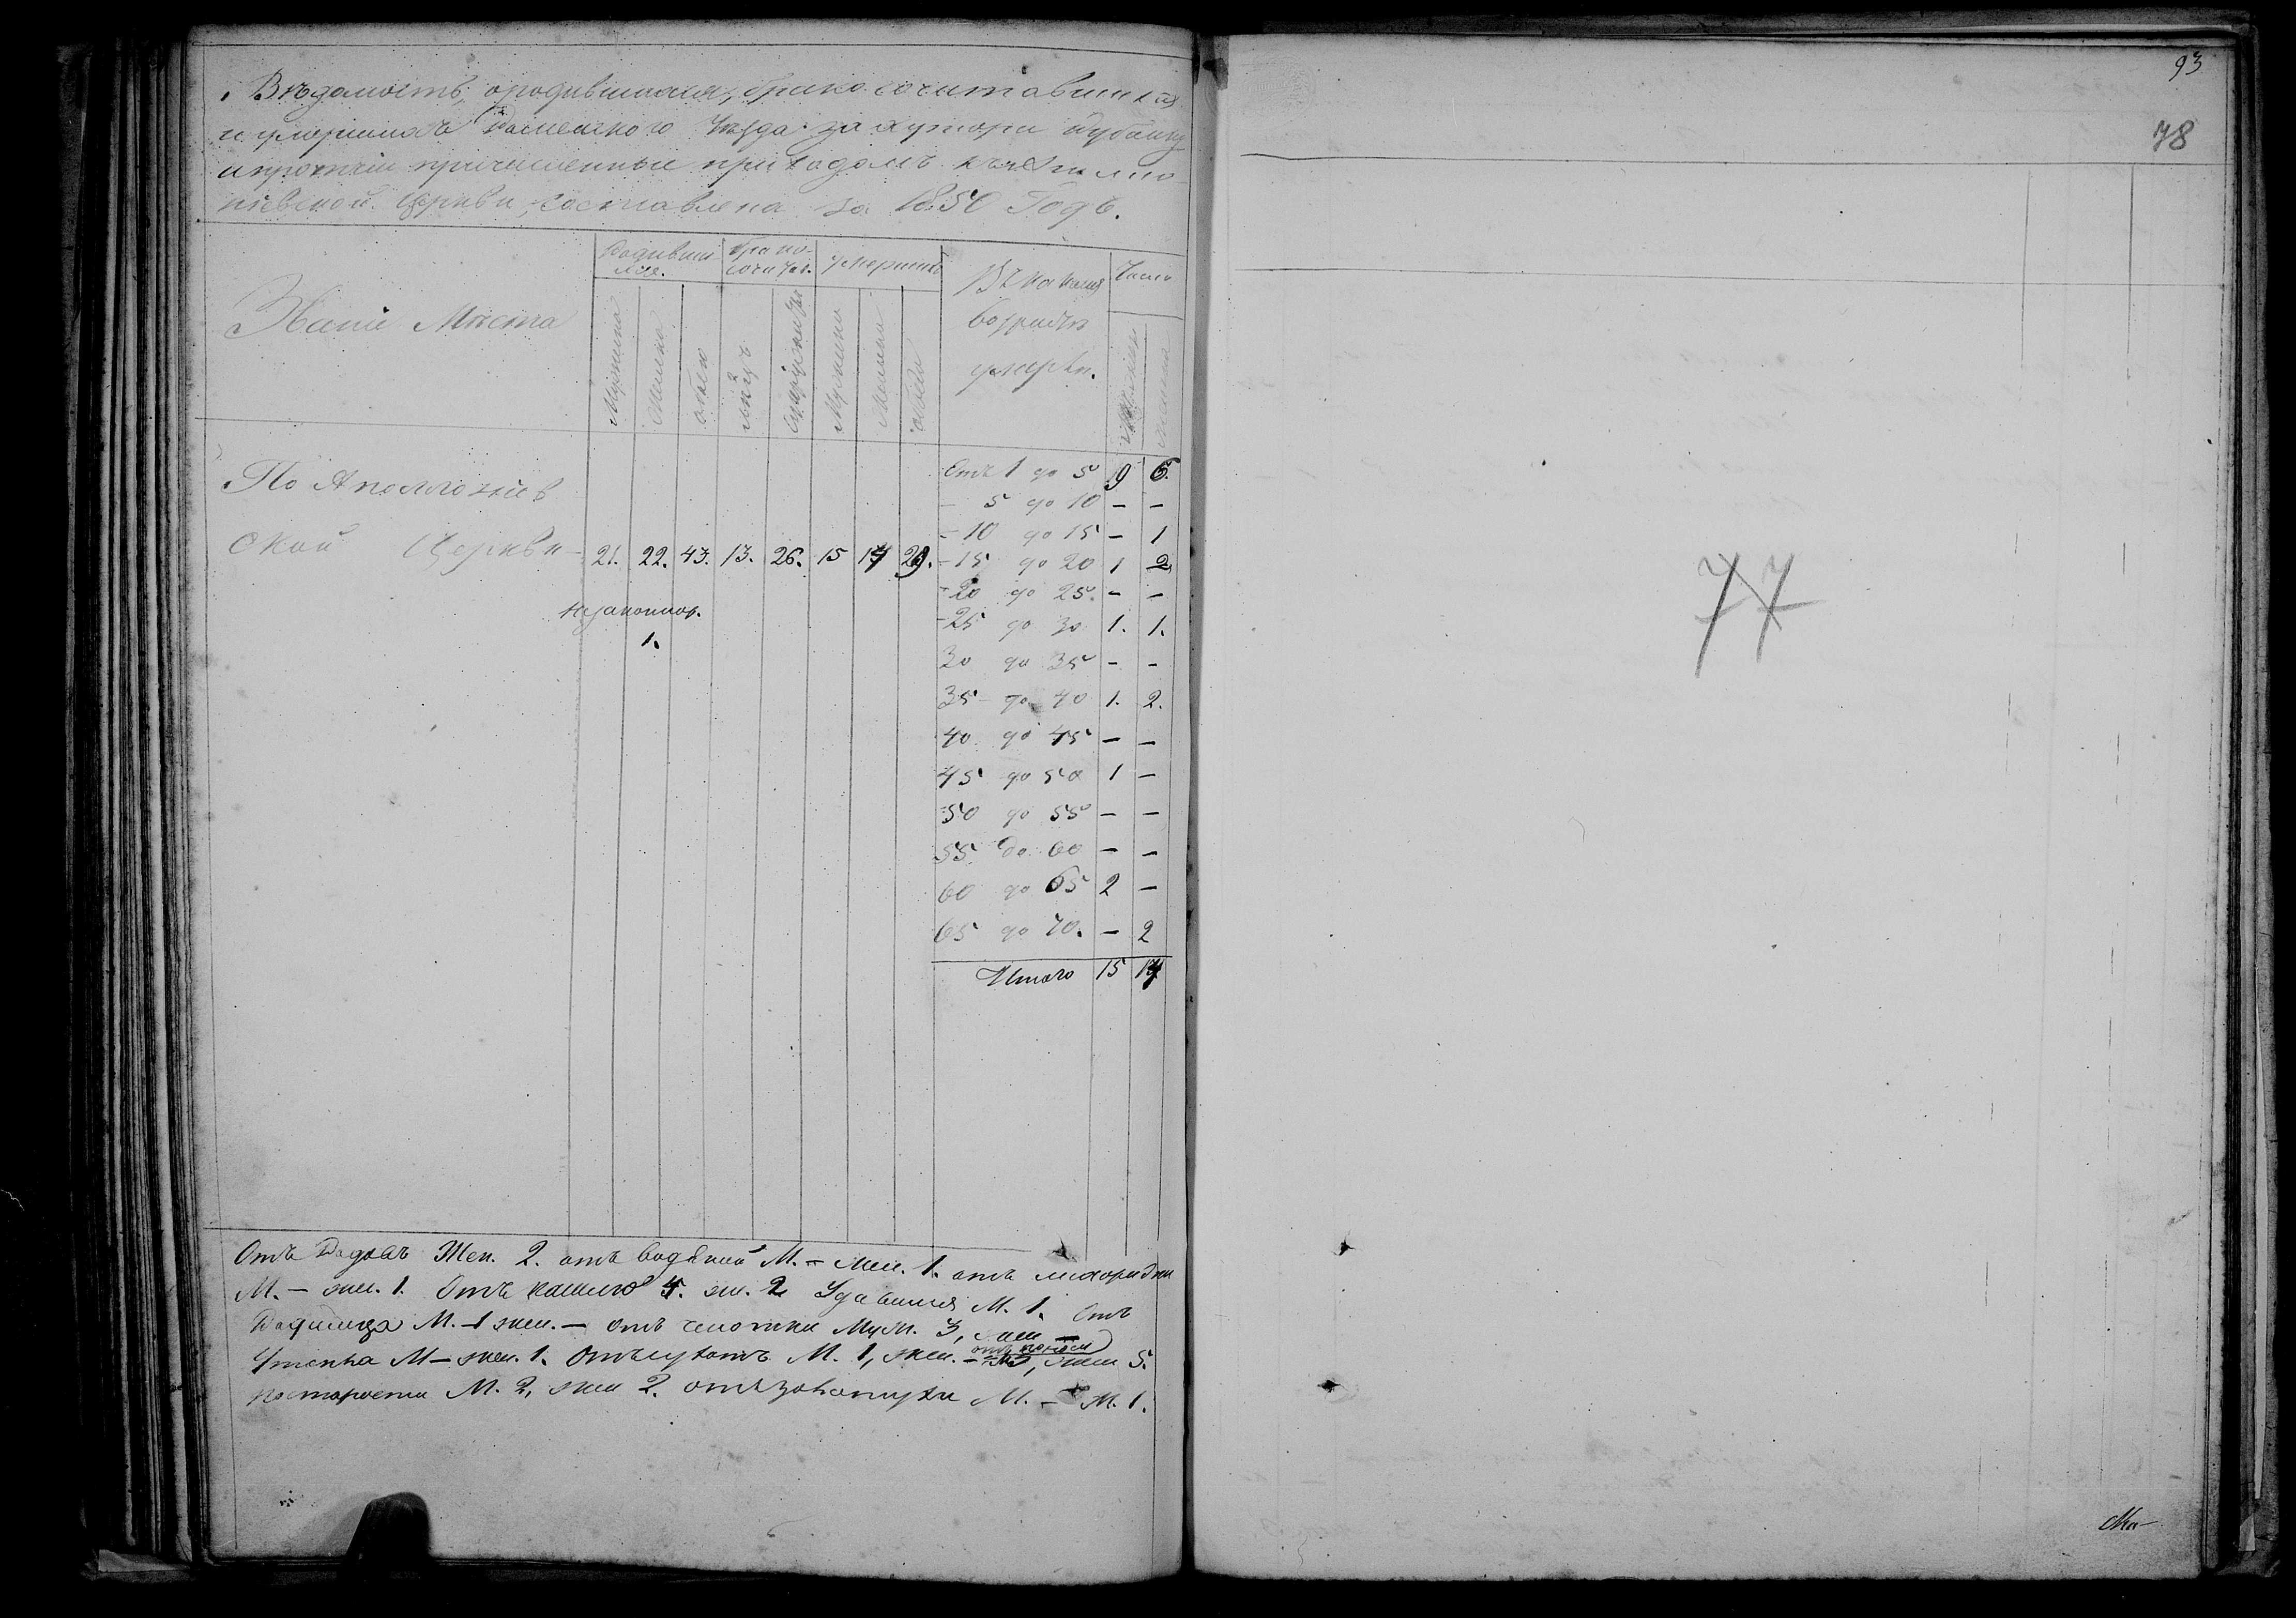 Вѣдомость, ородившихся, бракосочитавшихся
и умершихъ Уѣзда за хутори
ипротчіи причисленные приходомъ къ Аполло
ніевской Церкви, составлена за 1850 Годъ.
Званіе Мѣста
Родивши
хся.
Брако-
сочитав.
умершихъ
Вѣ какихъ
возрастѣ
умерли.
Число
Мужеска Женска обоего лицъ супружествъ Мужеска Женска обоего Женска
По Аполлоніев
ской Церкви - 21. 22. 43. 13. 26. 15 14 29.
незаконнор.
1.
Отъ 1 до 5 9 6.
- 5 до 10 - -
- 10 до 15 - 1
- 15 до 20 1 2
- 20 до 25. - -
- 25 до 30 1. 1.
30 до 35 - -
35 до 40 1. 2.
40 до 45 - -
45 до 50 1 -
50 до 55 - -
55 до 60 - -
60 до 65 2 -
65 до 70. - 2
Итого 15 14
Отъ Родовъ Жен. 2. отъ водяной М. - жен. 1. отъ лихорадки
М. - жен. 1. Отъ кашлю 4. жен. 2 Удавился М. 1. Отъ
Родимца М. 1 жен. - отъ чесотки Муж. 3, жен -
М - жен. 1. Отъ сухотъ М. 1, жен. - отъ поносу М 3, жен 5.
постарости М. 2, жен 2. М. - 1.
93
78
77